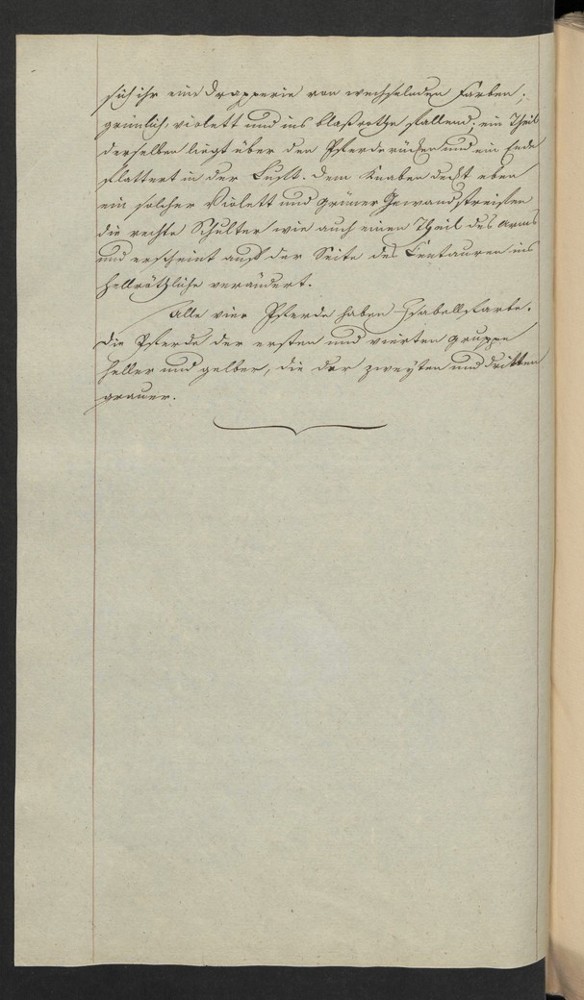 sich ihr eine Drapperie von wechselnden Farben;
grünlich, violett und ins blaßrothe fallend; ein Theil
derselben liegt über den Pferderücken und ein Ende
flattert in der Luft. Dem Knaben deckt eben
ein solcher Violett und grüner Gewandstreifen
die rechte Schulter wie auch einen Theil des Arms
und erscheint auf der Seite des Centauren ins
hellröthliche verändert.
Alle vier Pferde haben Isabellfarbe.
Die Pferde der ersten und vierten Gruppe
heller und gelber, die der zweyten und dritten
grauer.